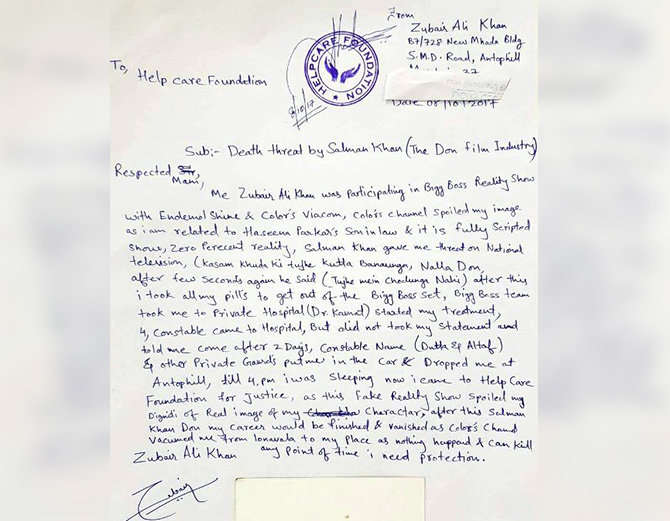 From
Zubair Ali Khan
B7/728 New Mhada Bldg.
S.M.D. Road, Antophill
Date 08/10/2017
HELPCARE FOUNDATION
8/10/17
To,
Help care Foundation
Sub;- Death threat by Salman Khan (The Don film Industry)
Respected Sir,
Mam,
Me Zubair Ali Khan was participating in Bigg Boss Reality Show
with Endemol Shine & Color's Viacom, Color's channel spoiled my image
as i am related to Haseena Parkar's Son in law & it is fully Scripted
Show, Zero Percent reality, Salman Khan gave me threat on National
television, (Kasam Khuda Ki tujhe Kutta Banaunga, Nalla Don,
after few seconds again he said (Tujhe mein Chodunga Nahi) after this
i took all my pill's to get out of the Bigg Boss Set, Bigg Boss team
took me to Private Hospital (Dr. Kamel) Stated my treatment,
4, Constable came to Hospital, But did not took my Statement and
told me come after 2 Days, Constable Name (Duth & Altaf)
& other Private Gaurds put me in the Car & Dropped me at
Antophill, till 4 pm i was Sleeping now i came to Help Care
Foundation for justice, as this Fake Reality Show spoiled my
of Real image of my Charactar, after this Salman
Khan Don my career would be finished & vanished as Color's Chanel
Vacumed me from lonavala to my place as nothing happand & can kill
any point of time i need protection.
Zubair Ali Khan
Zubair